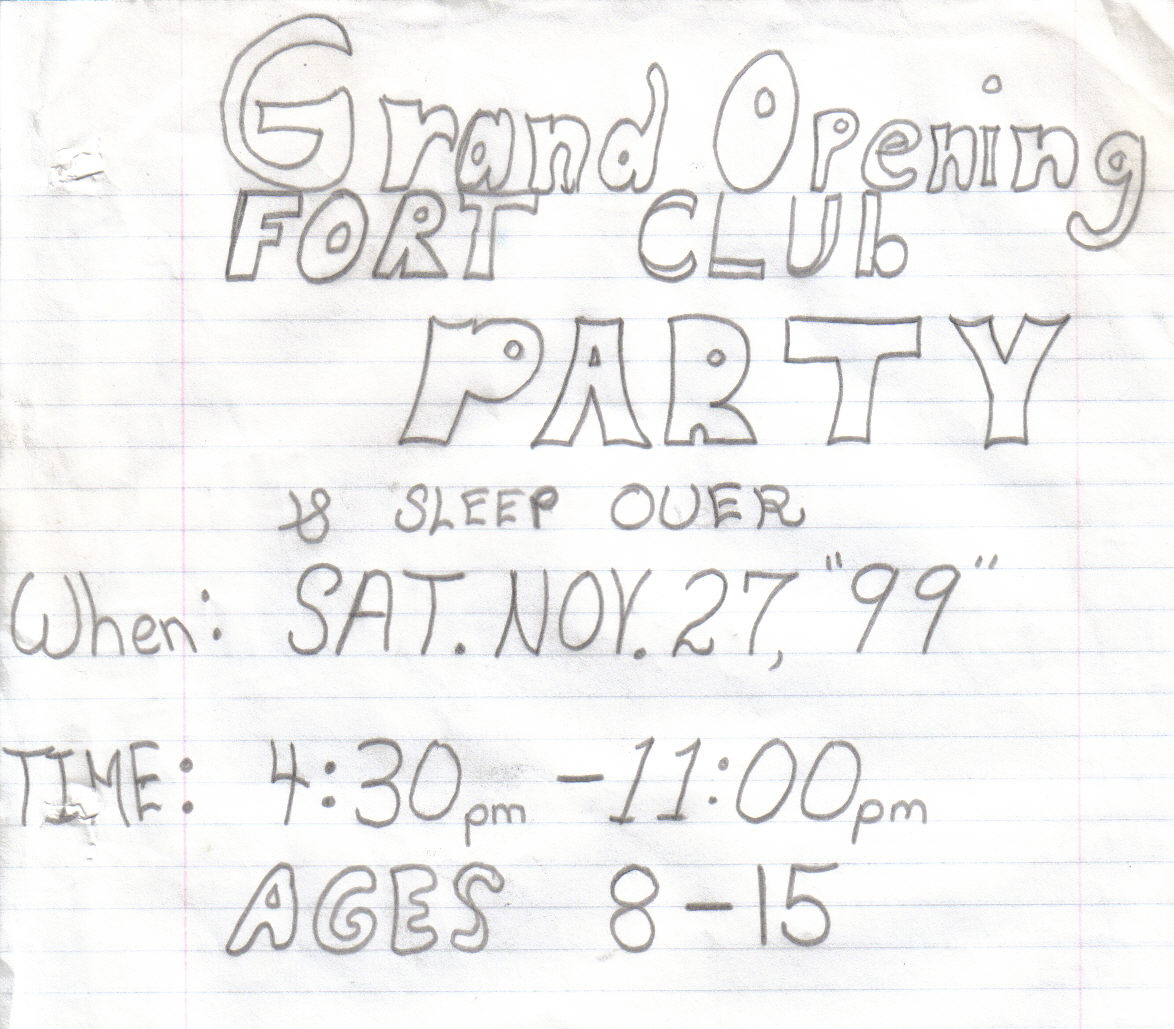 Grand Opening
FORT CLUb
PARTY
& SLEEP OVER
When: SAT. NOV. 27, "99"
TIME: 4:30pm - 11:00pm
AGES 8-15